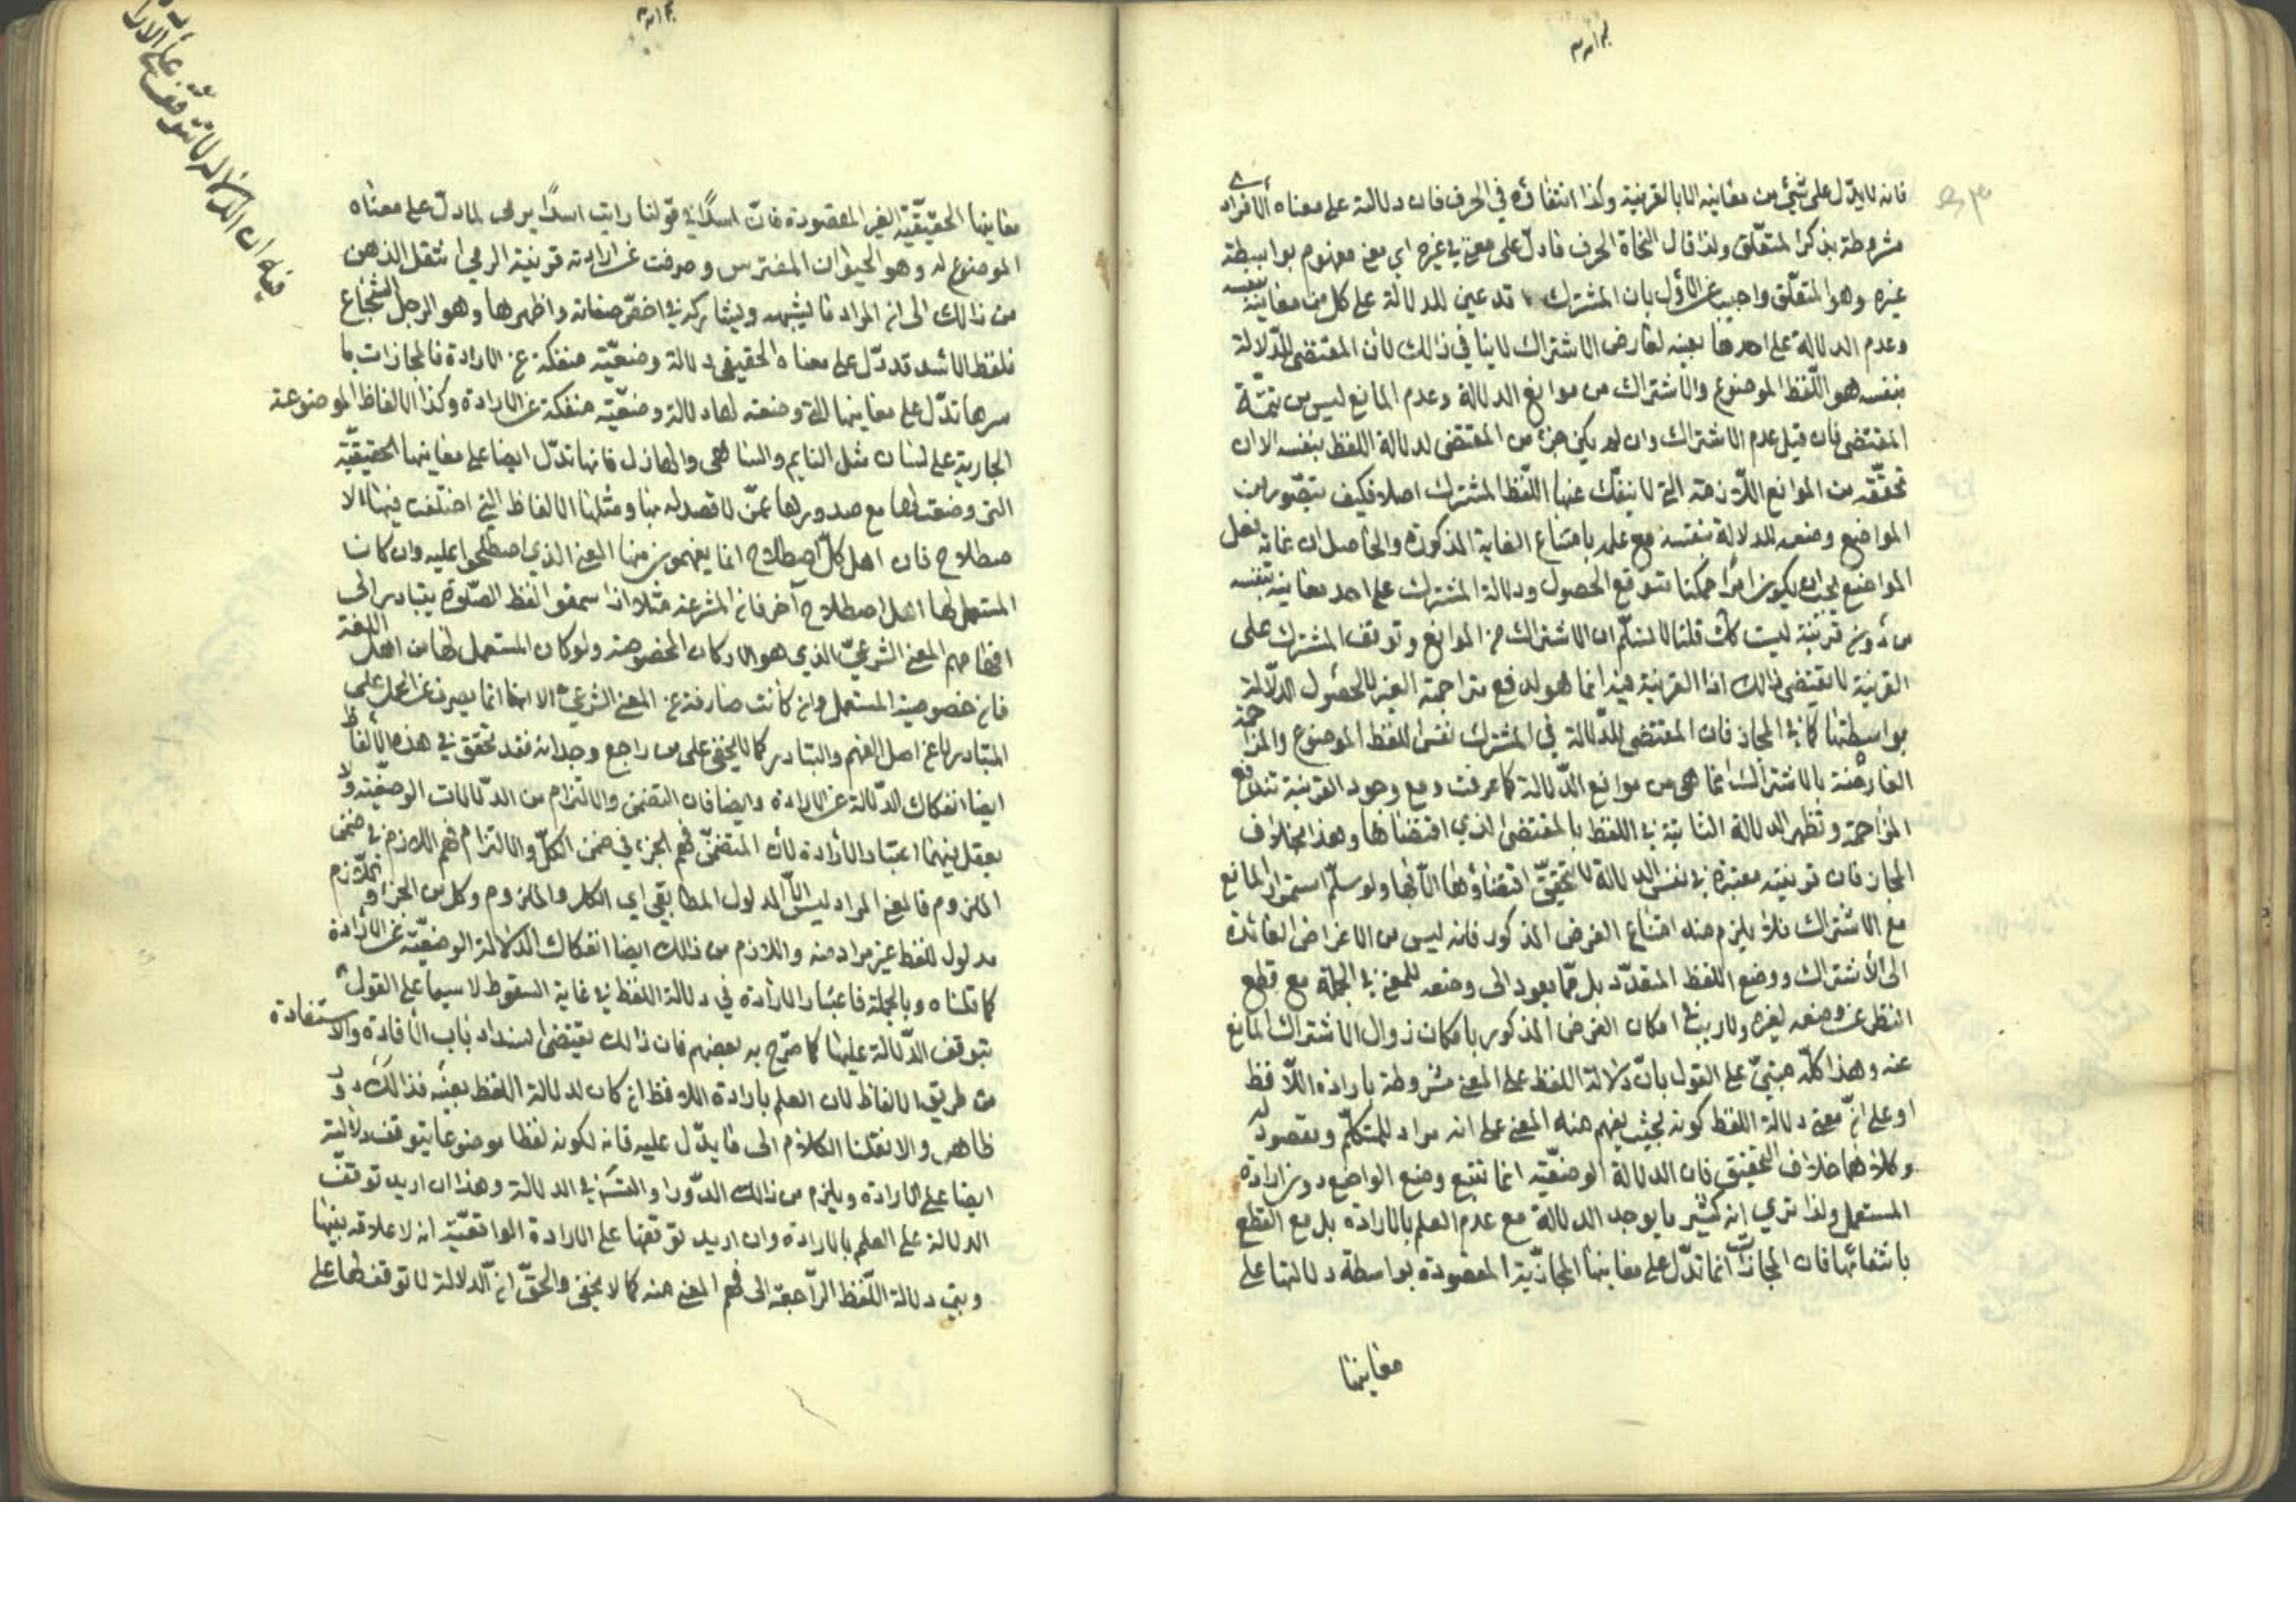 فانه لا يدل على شيئ من معانيه الا بالقرينة وكذا انتفاؤه في الحرف فان دلالته على معناه الافرادي
مشروطة بذكر المتعلق ولذا قال النحاة الحرف ما دل على معنى في غيره اي معنى مفهوم بواسطة
غيره وهو المتعلق واجيب عن الاول بان المشترك قد عين للدلالة على كل من معانيه بنفسه
وعدم الدلالة على احدها بعينه لعارض الاشتراك لا ينافي ذالك لان المقتضى للدلالة
بنفسه هو اللفظ الموضوع والاشتراك من موانع الدلالة وعدم المانع ليس من تتمة
المقتضى فان قيل عدم الاشتراك وان لم يكن جزء من المقتضى لدلالة اللفظ بنفسه الا ان
تحققه من الموانع اللازمة التي لا ينفك عنها اللفظ المشترك اصلا فكيف يتصور من
الواضع وضعه للدلالة بنفسه مع علمه بامتناع الغاية المذكورة والحاصل ان غاية فعل
الواضع يجب ان يكون امرا ممكنا متوقع الحصول ودلالة المشترك على احد معانيه بنفسه
من دون قرينة ليست كك قلنا لا نسلم ان الاشتراك من الموانع وتوقف المشترك على
القرينة لا يقتضي ذالك اذ القرينة فيه انما هو لدفع مزاحمة الغير لا لحصول الدلالة
بواسطتها كما في المجاز فان المقتضى للدلالة في المشترك نفس اللفظ الموضوع والمزاحمة
العارضة بالاشتراك انما هي من موانع الدلالة كما عرفت ومع وجود القرينة تندفع
المزاحمة وتظهر الدلالة الثابتة في اللفظ بالمقتضى الذي اقتضاها وهذا بخلاف
المجاز فان قرينته معتبرة في نفس الدلالة لا يتحقق اقتضاؤها الا بها ولو سلم استمرار المانع
مع الاشتراك فلا يلزم منه امتناع الغرض المذكور فانه ليس من الاغراض العائدة
الى الاشتراك ووضع اللفظ المتعدد بل مما يعود الى وضعه للمعنى في الجملة مع قطع
النظر عن وضعه لغيره ولا ريب في امكان الغرض المذكور بامكان زوال الاشتراك المانع
عنه وهذا كله مبني على القول بان دلالة اللفظ على المعنى مشروطة بارادة اللافظ
او على ان معنى دلالة اللفظ كونه بحيث يفهم منه المعنى على انه مراد للمتكلم ومقصود له
وكلاهما خلاف التحقيق فان الدلالة الوضعية انما تتبع وضع الواضع دون ارادة
المستعمل ولذا ترى انه كثيرا ما يوجد الدلالة مع عدم العلم بالارادة بل مع القطع
بانتفائها فان المجازات انما تدل على معانيها المجازية المقصودة بواسطة دلالتها على
معانيها
معانيها الحقيقية الغير المقصودة فان اسدا في قولنا رايت اسدا يرمى لما دل على معناه
الموضوع له وهو الحيوان المفترس وصرفت عن ارادته قرينة الرمي انتقل الذهن
من ذالك الى ان المراد ما يشبهه ويشاركه في اخص صفاته واظهرها وهو الرجل الشجاع
فلفظ الاسد قد دل على معناه الحقيقي دلالة وضعية منفكة عن الارادة فالمجازات با
سرها تدل على معانيها التي وضعت لها دلالة وضعية منفكة عن الارادة وكذا الالفاظ الموضوعة
الجارية على لسان مثل النايم والساهى والهازل فانها تدل ايضا على معانيها الحقيقية
التى وضعت لها مع صدورها عمن لا قصد له بها ومثلها الالفاظ التي اختلفت فيها الا
صطلاح فان اهل كل اصطلاح انما يفهمون منها المعنى الذي اصطلحوا عليه وان كان
المستعمل لها اهل اصطلاح آخر فان المتشرعة مثلا اذا سمعوا لفظ الصلوة يتبادر الى
افهامهم المعنى الشرعي الذي هو الاركان المخصوصة ولو كان المستعمل لها من اهل اللغة
فان خصوصية المستعمل وان كانت صارفة عن المعنى الشرعي الا انها انما يصرف عن الحمل على
المتبادر لا عن اصل الفهم والتبادر كما لا يخفى على من راجع وجدانه فقد تحقق في هذه الالفاظ
ايضا انفكاك الدلالة عن الارادة وايضا فان التضمن والالتزام من الدلالات الوضعية ولا
يعقل فيهما اعتبار الارادة لان التضمن فهم الجزء في ضمن الكل والالتزام فهم اللازم في ضمن
الملزوم فالمعنى المراد ليس الا المدلول المطابقي اي الكل والملزوم وكل من الجزء واللازم
مدلول للفظ غير مراد منه واللازم من ذالك ايضا انفكاك الدلالة الوضعية عن الارادة
كما قلناه وبالجملة فاعتبار الارادة في دلالة اللفظ في غاية السقوط لا سيما على القول
بتوقف الدلالة عليها كما صرح به بعضهم فان ذالك يقتضى انسداد باب الافادة والاستفادة
من طريق الالفاظ لان العلم بارادة اللافظ ان كان لدلالة اللفظ بعينه فذالك دور
ظاهر والا نقلنا الكلام الى ما يدل عليه فانه لكونه لفظا موضوعا يتوقف دلالته
ايضا على الارادة ويلزم من ذالك الدور او التسلسل في الدلالة وهذا ان اريد توقف
الدلالة على العلم بالارادة وان اريد توقفها على الارادة الواقعية انه لا علاقة بينها
وبين دلالة اللفظ الراجعة الى فهم المعنى منه كما لا يخفى والحق ان الدلالة لا توقف لها على
فيه ان الدلالة لا تتوقف على الارا